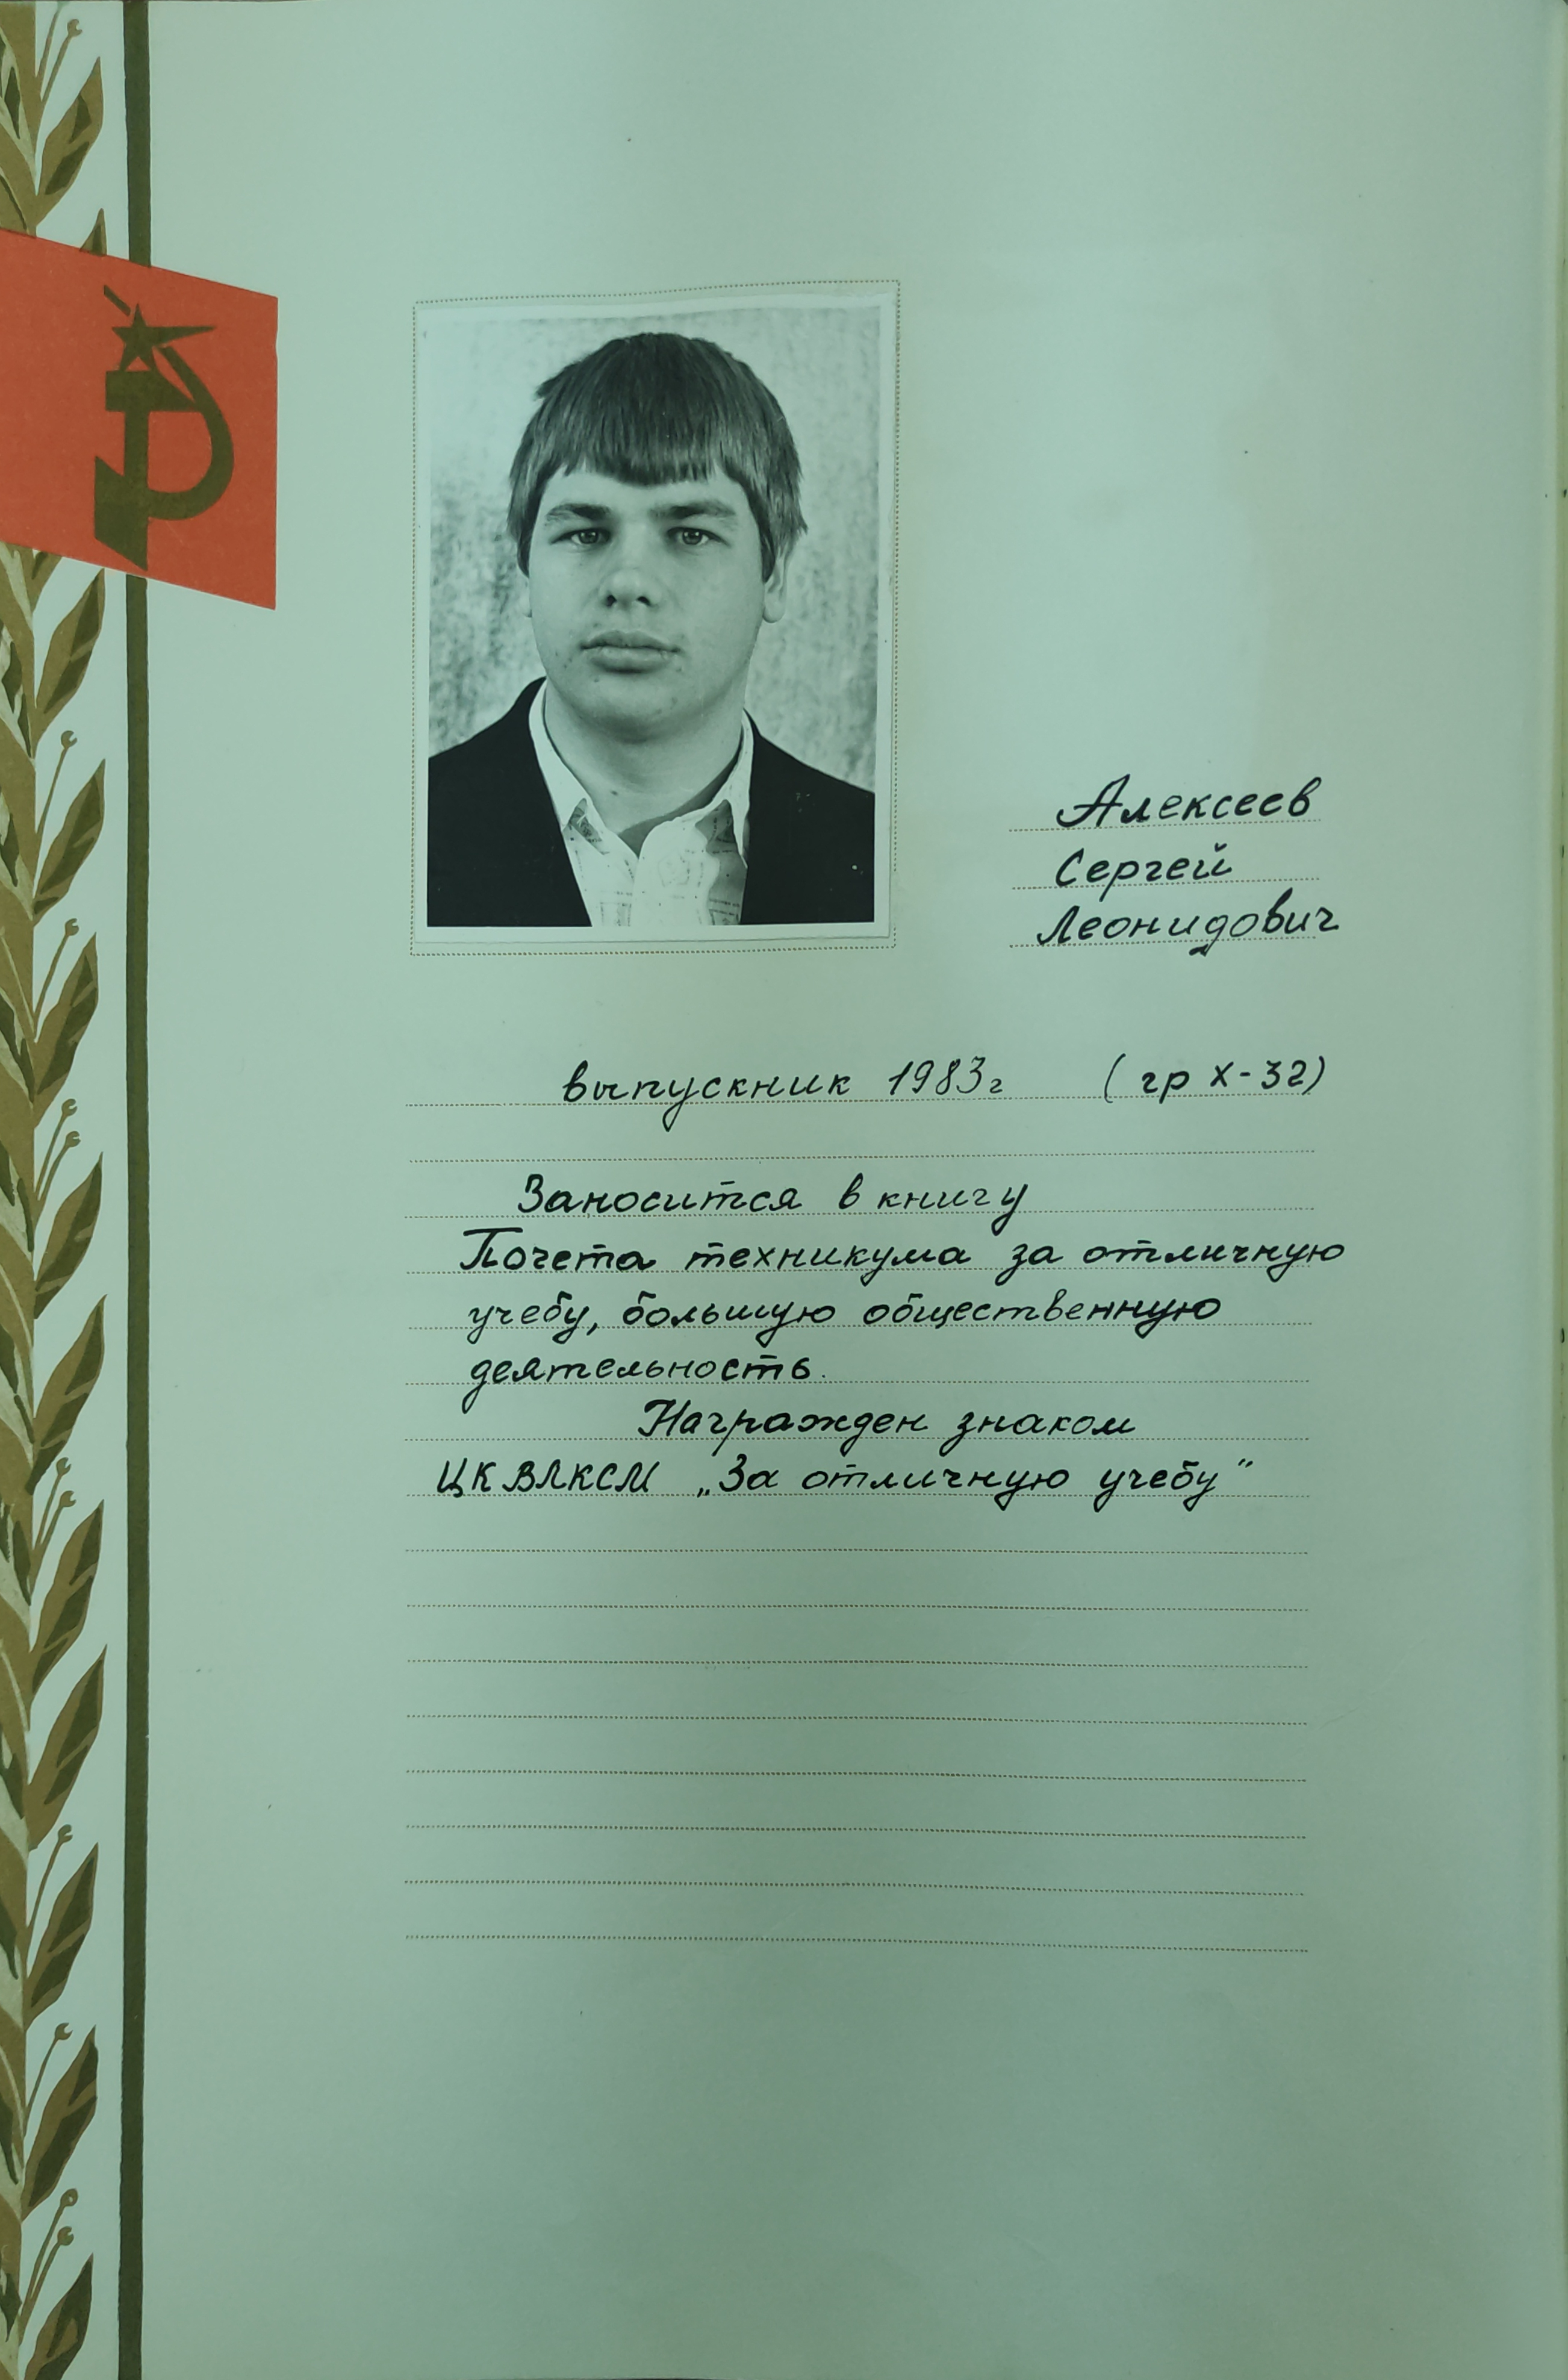 Алексеев
Сергей
Леонидович
выпускник 1983г (гр Х-32)
Заносится в книгу
Почета техникума за отличную
учебу, большую общественную
деятельность.
Награжден знаком
ЦК ВЛКСМ „За отличную учебу"